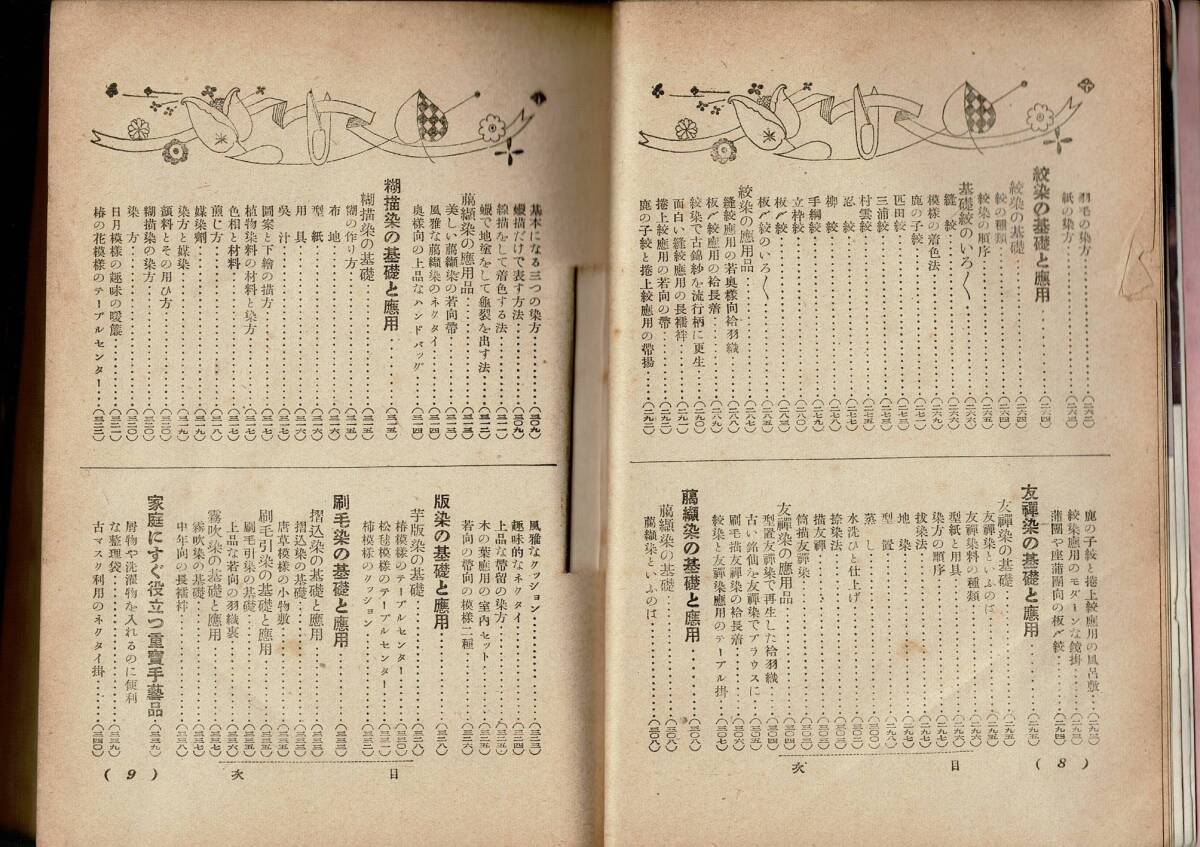 羽毛の染方……(二六三)
紙の染方……(二六三)
絞染の基礎と應用……(二六四)
絞染の基礎……(二六四)
絞の種類……(二六四)
絞染の順序……(二六五)
基礎絞のいろ〱……(二六六)
縫ひ絞……(二六六)
模樣の着色法……(二六九)
鹿の子絞……(二七一)
匹田絞……(二七三)
三浦絞……(二七三)
村雲絞……(二七五)
忍絞……(二七七)
柳絞……(二七八)
手綱絞……(二七九)
立枠絞……(二八一)
板〆絞……(二八三)
板〆絞のいろ〱……(二八五)
絞染の應用品……(二八七)
縫絞應用の若奥樣向袷羽織……(二八八)
板〆絞應用の袷長着……(二八九)
絞染で古錦紗を流行柄に更生……(二九〇)
面白い縫絞應用の長襦袢……(二九一)
捲上絞應用の若向の帶……(二九二)
鹿の子絞と捲上絞應用の帶揚……(二九二)
鹿の子絞と捲上絞應用の風呂敷……(二九三)
絞染應用のモダーンな鏡掛……(二九三)
蒲團や座蒲團向の板〆絞……(二九四)
友禪染の基礎と應用……(二九五)
友禪染の基礎……(二九五)
友禪染といふのは……(二九五)
友禪染料の種類……(二九六)
型紙と用具……(二九六)
染方の順序……(二九七)
拔染法……(二九七)
地染……(二九七)
型置……(二九八)
蒸し……(三〇〇)
水洗ひと仕上げ……(三〇一)
捺染法……(三〇二)
描友禪……(三〇二)
筒描友禪染……(三〇三)
友禪染の應用品……(三〇四)
型置友禪染で再生した袷羽織……(三〇四)
古い銘仙を友禪染でブラウスに……(三〇五)
刷毛描友禪染の袷長着……(三〇六)
絞染と友禪染應用のテーブル掛……(三〇七)
﨟纈染の基礎と應用……(三〇八)
﨟纈染の基礎……(三〇八)
﨟纈染といふのは……(三〇八)
目次
(8)
基本になる三つの染方……(三〇九)
蠟描だけで表す方法……(三〇九)
線描をして着色する法……(三一一)
蠟で地塗をして龜裂を出す法……(三一二)
﨟纈染の應用品……(三一三)
美しい﨟纈染の若向帶……(三一三)
風雅な﨟纈染のネクタイ……(三一四)
奥樣向の上品なハンドバッグ……(三一四)
糊描染の基礎と應用……(三一五)
糊描染の基礎……(三一五)
糊の作り方……(三一五)
布地……(三一六)
型紙……(三一六)
用具……(三一六)
呉汁……(三一七)
圖案と下繪の描方……(三一七)
植物染料の材料と染方……(三一七)
色相と材料……(三一七)
煎じ方……(三一八)
媒染劑……(三一九)
染方と媒染……(三一九)
顏料とその用ひ方……(三二〇)
糊描染の染方……(三二〇)
染方……(三二〇)
日月模樣の趣味の暖簾……(三二一)
椿の花模樣のテーブルセンター……(三二二)
風雅なクッション……(三二三)
趣味的なネクタイ……(三二四)
上品な帶留の染方……(三二五)
木の葉應用の室内セット……(三二五)
若向の帶向の模樣二種……(三二六)
版染の基礎と應用……(三二八)
芋版染の基礎……(三二八)
椿模樣のテーブルセンター……(三三〇)
松毬模樣のテーブルセンター……(三三一)
柿模樣のクッション……(三三二)
刷毛染の基礎と應用……(三三三)
摺込染の基礎と應用……(三三三)
摺込染の基礎……(三三三)
唐草模樣の小物敷……(三三五)
刷毛引染の基礎と應用……(三三五)
刷毛引染の基礎……(三三五)
上品な若向の羽織裏……(三三六)
霧吹染の基礎と應用……(三三七)
霧吹染の基礎……(三三七)
中年向の長襦袢……(三三八)
家庭にすぐ役立つ重寶手藝品……(三三九)
屑物や洗濯物を入れるのに便利
な整理袋……(三三九)
古マスク利用のネクタイ掛……(三四〇)
目次
(9)